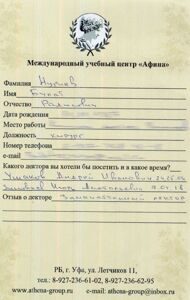 Международный учебный центр «Афина»
Фамилия Нуриев
Имя Булат
Отчество
Дата рождения
Место работы
Должность хирург
Номер телефона
e-mail
Какого доктора вы хотели бы посетить и в какое время?
Ушаков Андрей Иванович
Игорь Анатольевич
Отзыв о докторе Замечательный лектор
РБ, г. Уфа, ул. Летчиков 11,
тел.: 8-927-236-61-02, 8-927-236-62-95
athena-group.ru e-mail: athena-group@inbox.ru